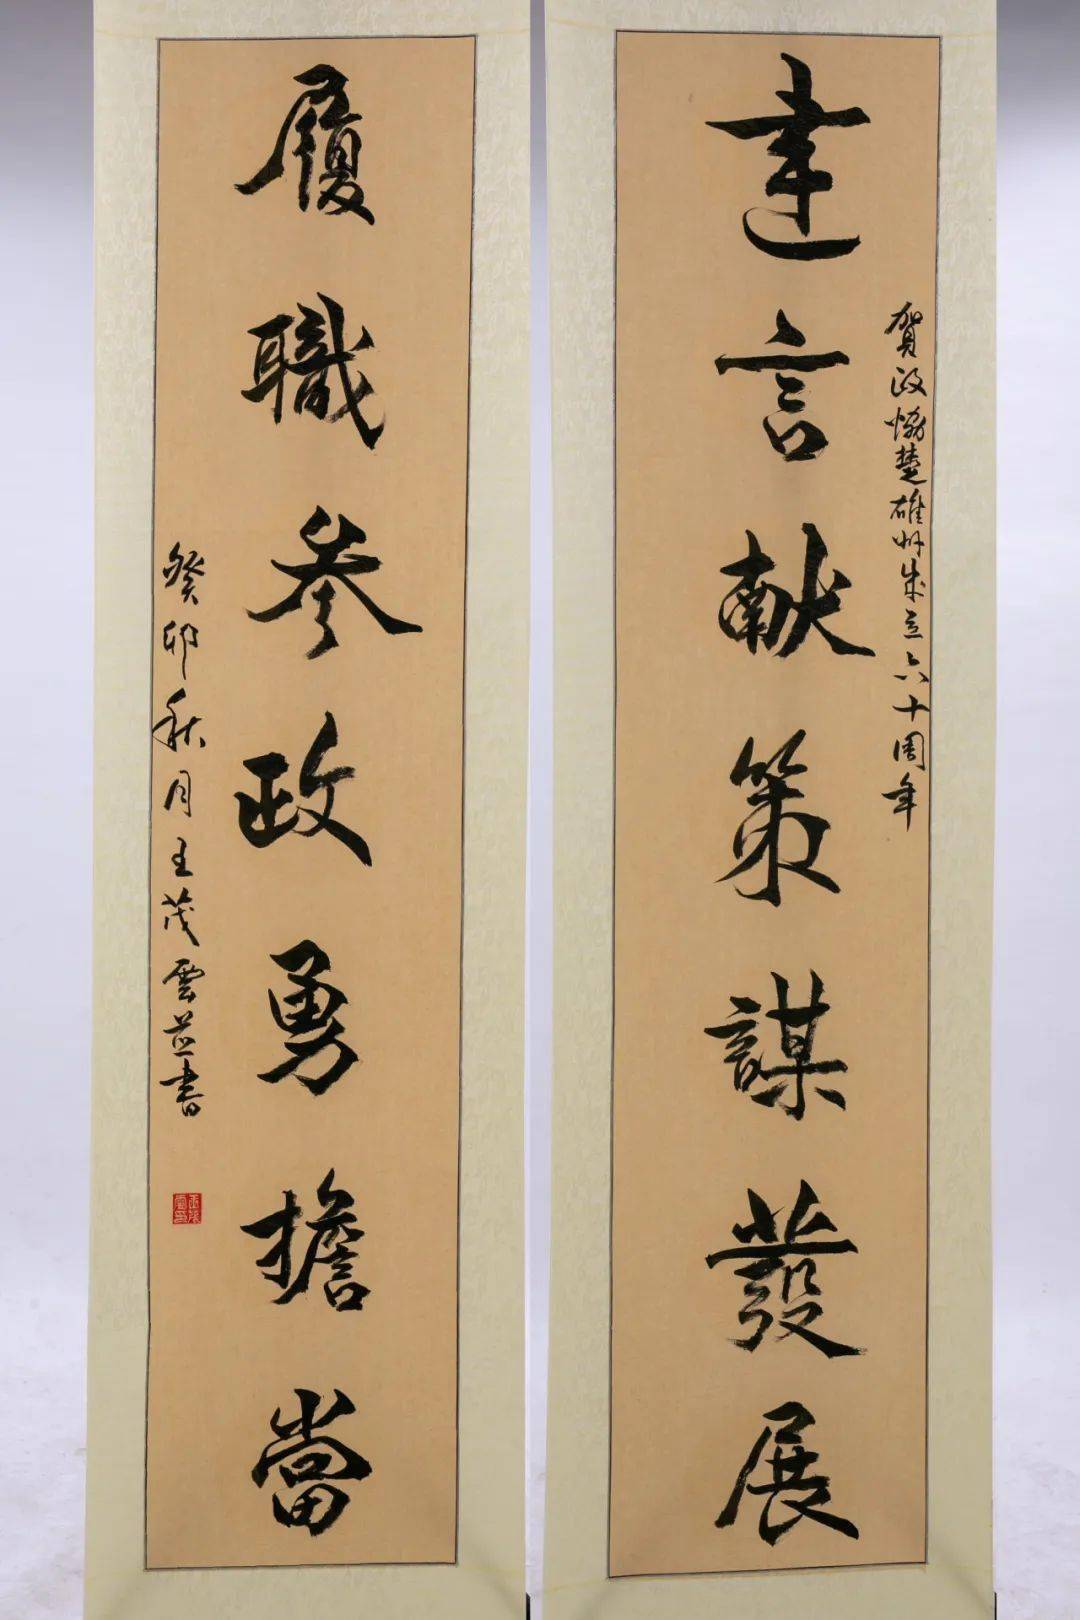 贺政恊楚雄州成立六十周年
建言献策謀發展
履職参政勇擔當
癸卯秋月王茂雲並書